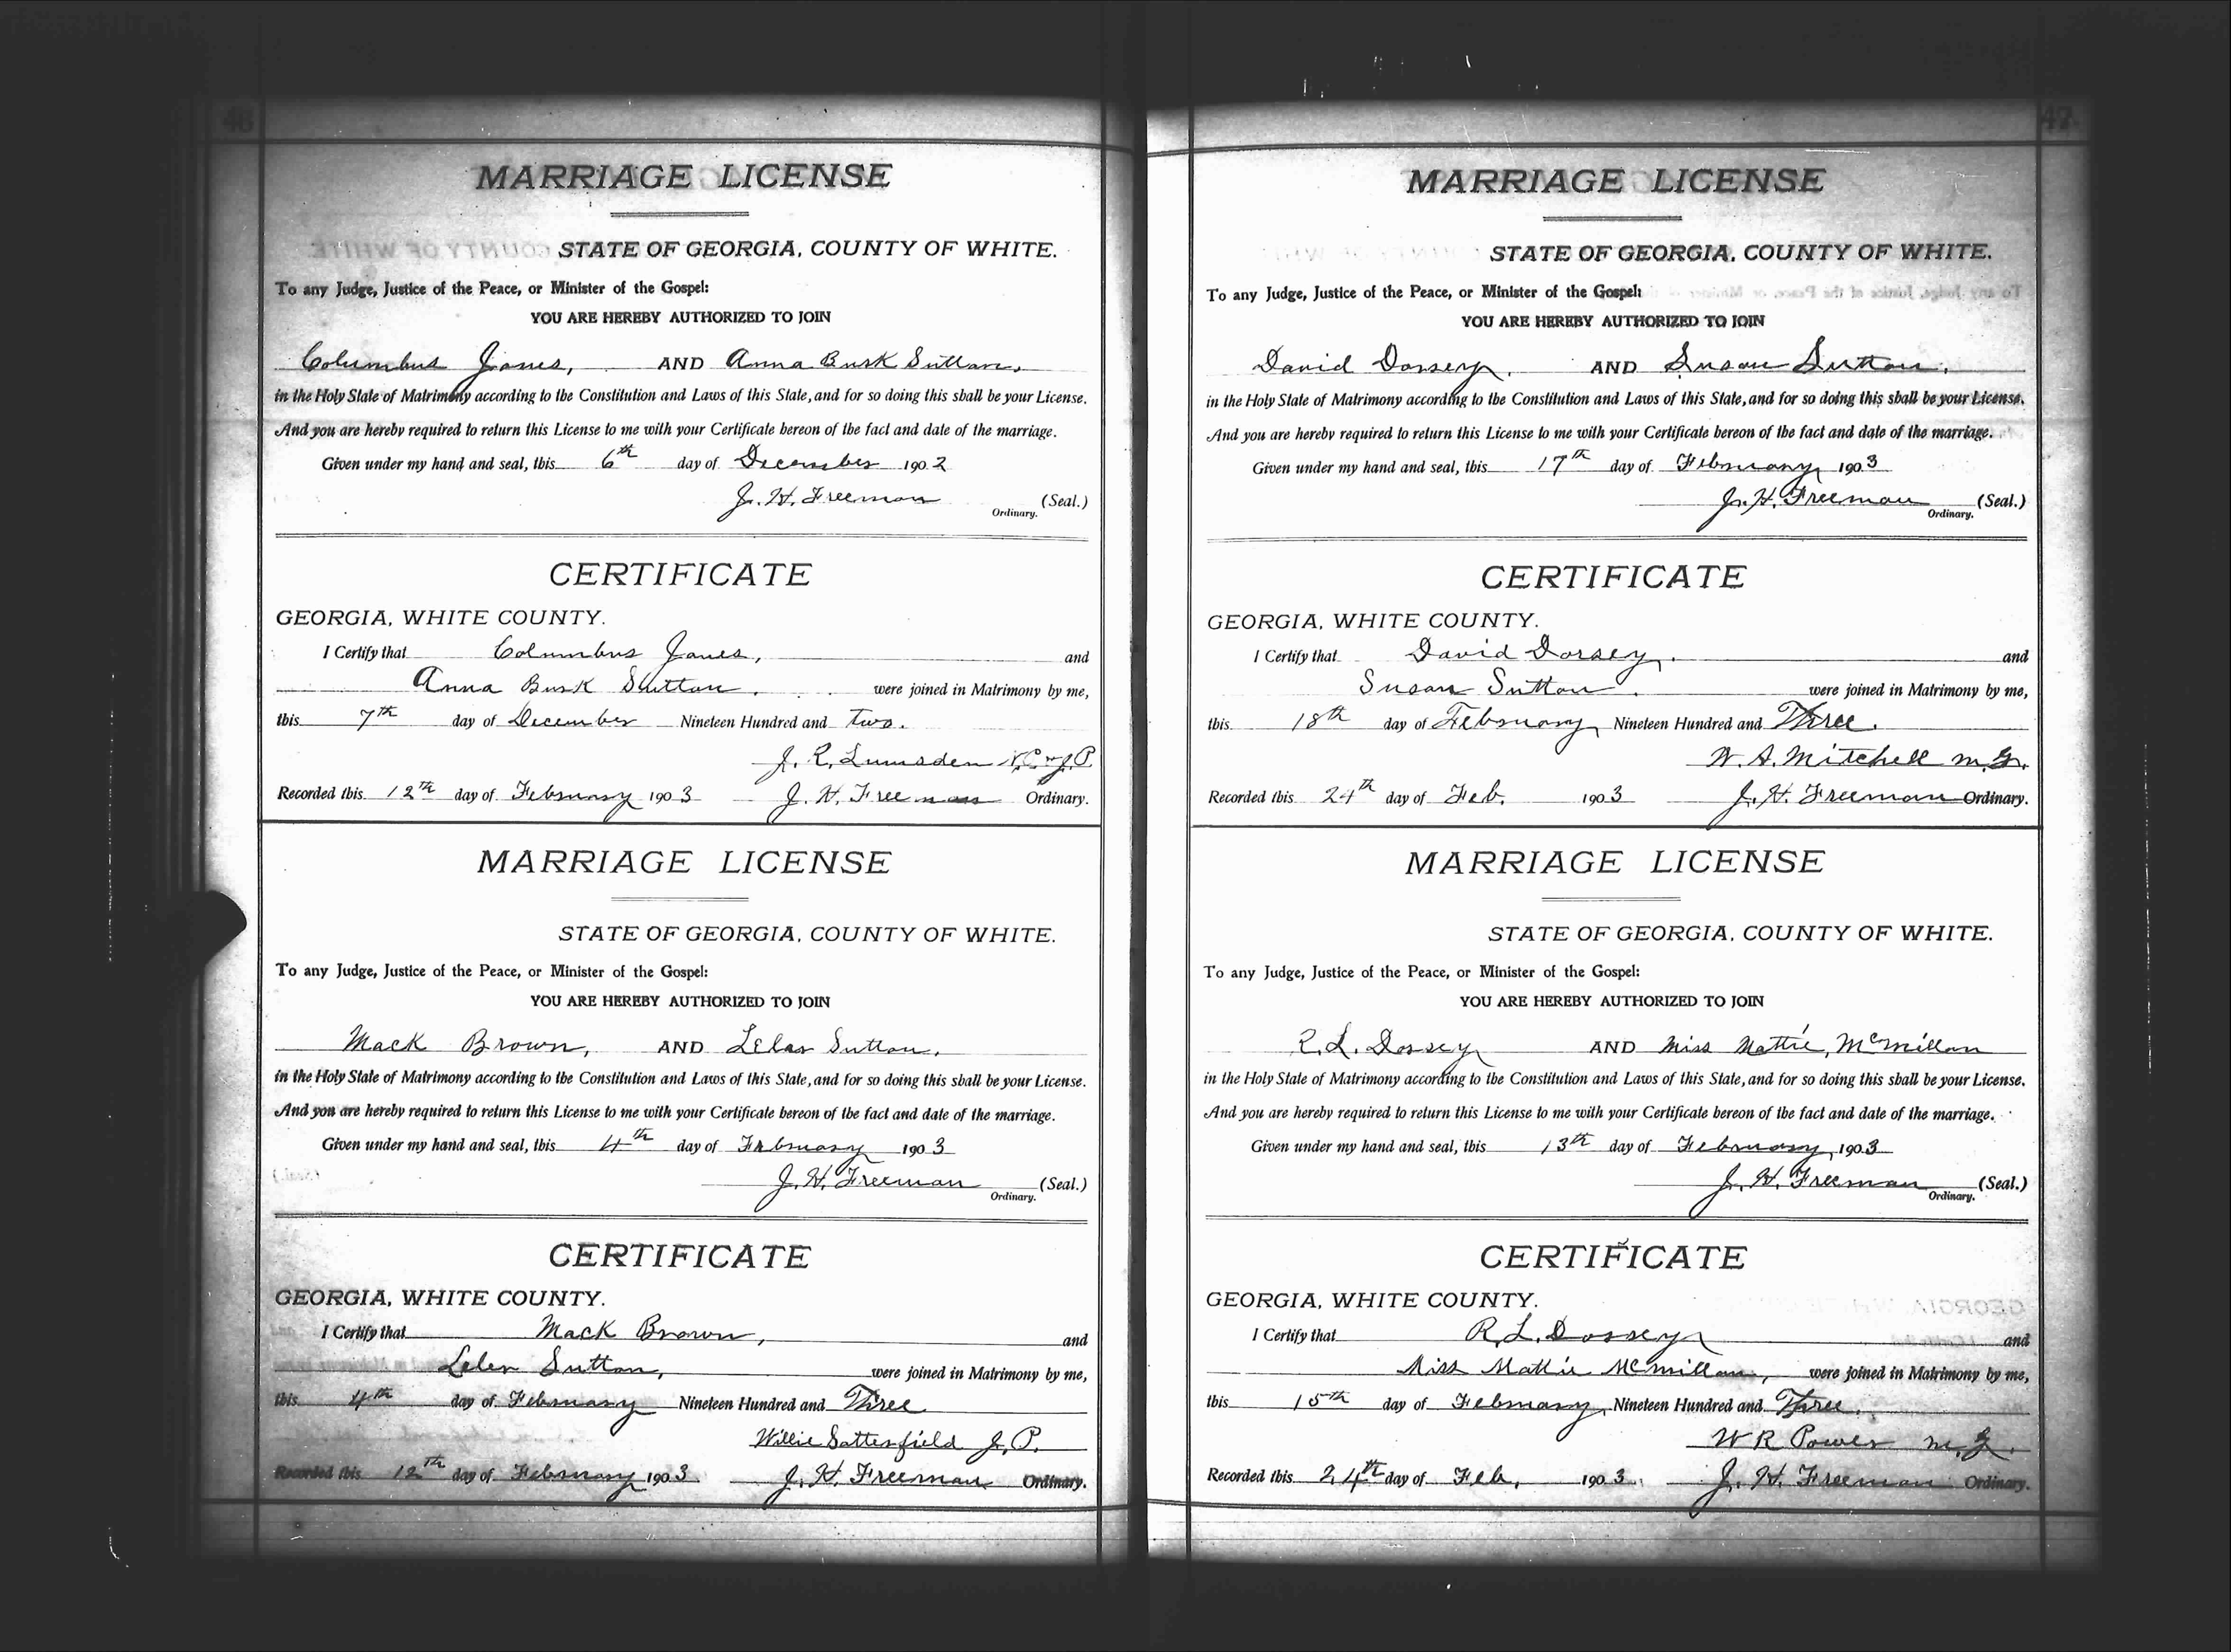 46
MARRIAGE LICENSE
STATE OF GEORGIA, COUNTY OF WHITE.
To any Judge, Justice of the Peace, or Minister of the Gospel:
YOU ARE HEREBY AUTHORIZED TO JOIN
Columbus Jones, AND Anna Busk Sutton,
in the Holy State of Matrimony according to the Constitution and Laws of this State, and for so doing this shall be your License.
And you are hereby required to return this License to me with your Certificate hereon of the fact and date of the marriage.
Given under my hand and seal, this 6th day of December 1902
J. H. Freeman (Seal.)
Ordinary.
CERTIFICATE
GEORGIA, WHITE COUNTY.
I Certify that Columbus Jones, and
Anna Busk Sutton. were joined in Matrimony by me,
this 7th day of December Nineteen Hundred and two.
J. R. Lumsden N.P. & J.P.
Recorded this 12th day of February 1903 J. H. Freeman Ordinary.
MARRIAGE LICENSE
STATE OF GEORGIA, COUNTY OF WHITE.
To any Judge, Justice of the Peace, or Minister of the Gospel:
YOU ARE HEREBY AUTHORIZED TO JOIN
Mack Brown, AND Lelar Sutton,
in the Holy State of Matrimony according to the Constitution and Laws of this State, and for so doing this shall be your License.
And you are hereby required to return this License to me with your Certificate hereon of the fact and date of the marriage.
Given under my hand and seal, this 4th day of February 1903
J. H. Freeman (Seal.)
Ordinary.
CERTIFICATE
GEORGIA, WHITE COUNTY.
I Certify that Mack Brown, and
Leler Sutton, were joined in Matrimony by me,
this 4th day of February Nineteen Hundred and Three
Willie Satterfield J. P.
Recorded this 12th day of February 1903 J. H. Freeman Ordinary.
47
MARRIAGE LICENSE
STATE OF GEORGIA, COUNTY OF WHITE.
To any Judge, Justice of the Peace, or Minister of the Gospel:
YOU ARE HEREBY AUTHORIZED TO JOIN
David Dorsey. AND Susan Sutton,
in the Holy State of Matrimony according to the Constitution and Laws of this State, and for so doing this shall be your License.
And you are hereby required to return this License to me with your Certificate hereon of the fact and date of the marriage.
Given under my hand and seal, this 17th day of February 1903
J. H. Freeman (Seal.)
Ordinary.
CERTIFICATE
GEORGIA, WHITE COUNTY.
I Certify that David Dorsey. and
Susan Sutton. were joined in Matrimony by me,
this 18th day of February Nineteen Hundred and Three.
W. A. Mitchell M.G.
Recorded this 24th day of Feb. 1903 J. H. Freeman Ordinary.
MARRIAGE LICENSE
STATE OF GEORGIA, COUNTY OF WHITE.
To any Judge, Justice of the Peace, or Minister of the Gospel:
YOU ARE HEREBY AUTHORIZED TO JOIN
R. L. Dorsey AND Miss Mattie McMillan
in the Holy State of Matrimony according to the Constitution and Laws of this State, and for so doing this shall be your License.
And you are hereby required to return this License to me with your Certificate hereon of the fact and date of the marriage.
Given under my hand and seal, this 13th day of February, 1903
J. H. Freeman (Seal.)
Ordinary.
CERTIFICATE
GEORGIA, WHITE COUNTY.
I Certify that R. L. Dorsey and
Miss Mattie McMillan, were joined in Matrimony by me,
this 15th day of February, Nineteen Hundred and Three.
W R Power M.G.
Recorded this 24th day of Feb. 1903. J. H. Freeman Ordinary.